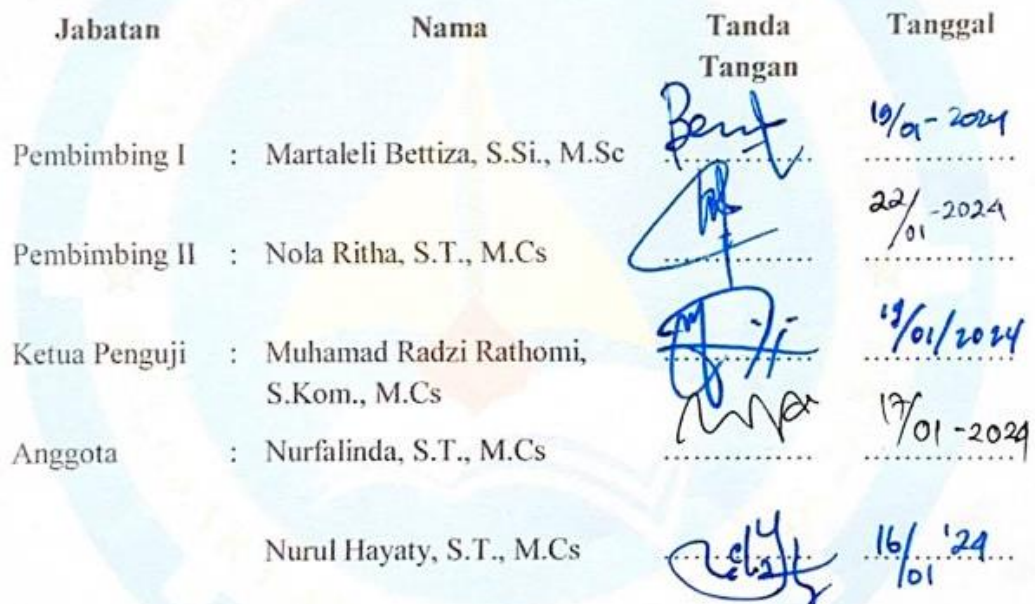 Jabatan Nama Tanda Tangan Tanggal
Pembimbing I : Martaleli Bettiza, S.Si., M.Sc .............. 19/01-2024
Pembimbing II : Nola Ritha, S.T., M.Cs .............. 22/01-2024
Ketua Penguji : Muhamad Radzi Rathomi, .............. 19/01/2024
S.Kom., M.Cs
Anggota : Nurfalinda, S.T., M.Cs .............. 17/01-2024
Nurul Hayaty, S.T., M.Cs .............. 16/01 '24